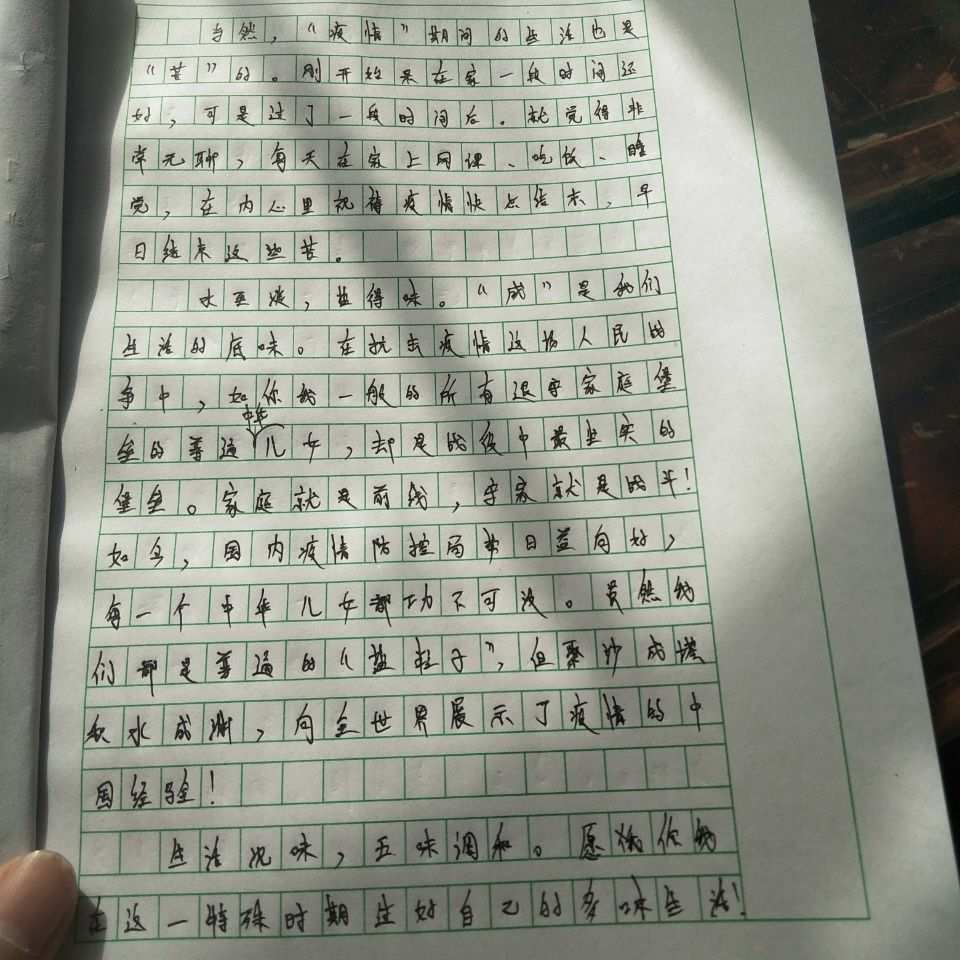 当然，“疫情”期间的生活也是
“苦”的。刚开始呆在家一段时间还
好，可是过了一段时间后。就觉得非
常无聊，每天在家上网课、吃饭、睡
觉，在内心里祝祷疫情快点结束，早
日结束这些苦。
水至淡，盐得味。“咸”是我们
生活的底味。在抗击疫情这场人民的
争中，如你我一般的所有退守家庭堡
垒的普通中华儿女，却是战役中最坚实的
堡垒。家庭就是前线，守家就是战斗！
如今，国内疫情防控局势日益向好，
每一个中华儿女都功不可没。虽然我
们都是普通的“盐粒子”，但聚沙成塔
积水成渊，向全世界展示了疫情的中
国经验！
生活况味，五味调和。愿你我
在这一特殊时期过好自己的多味生活！